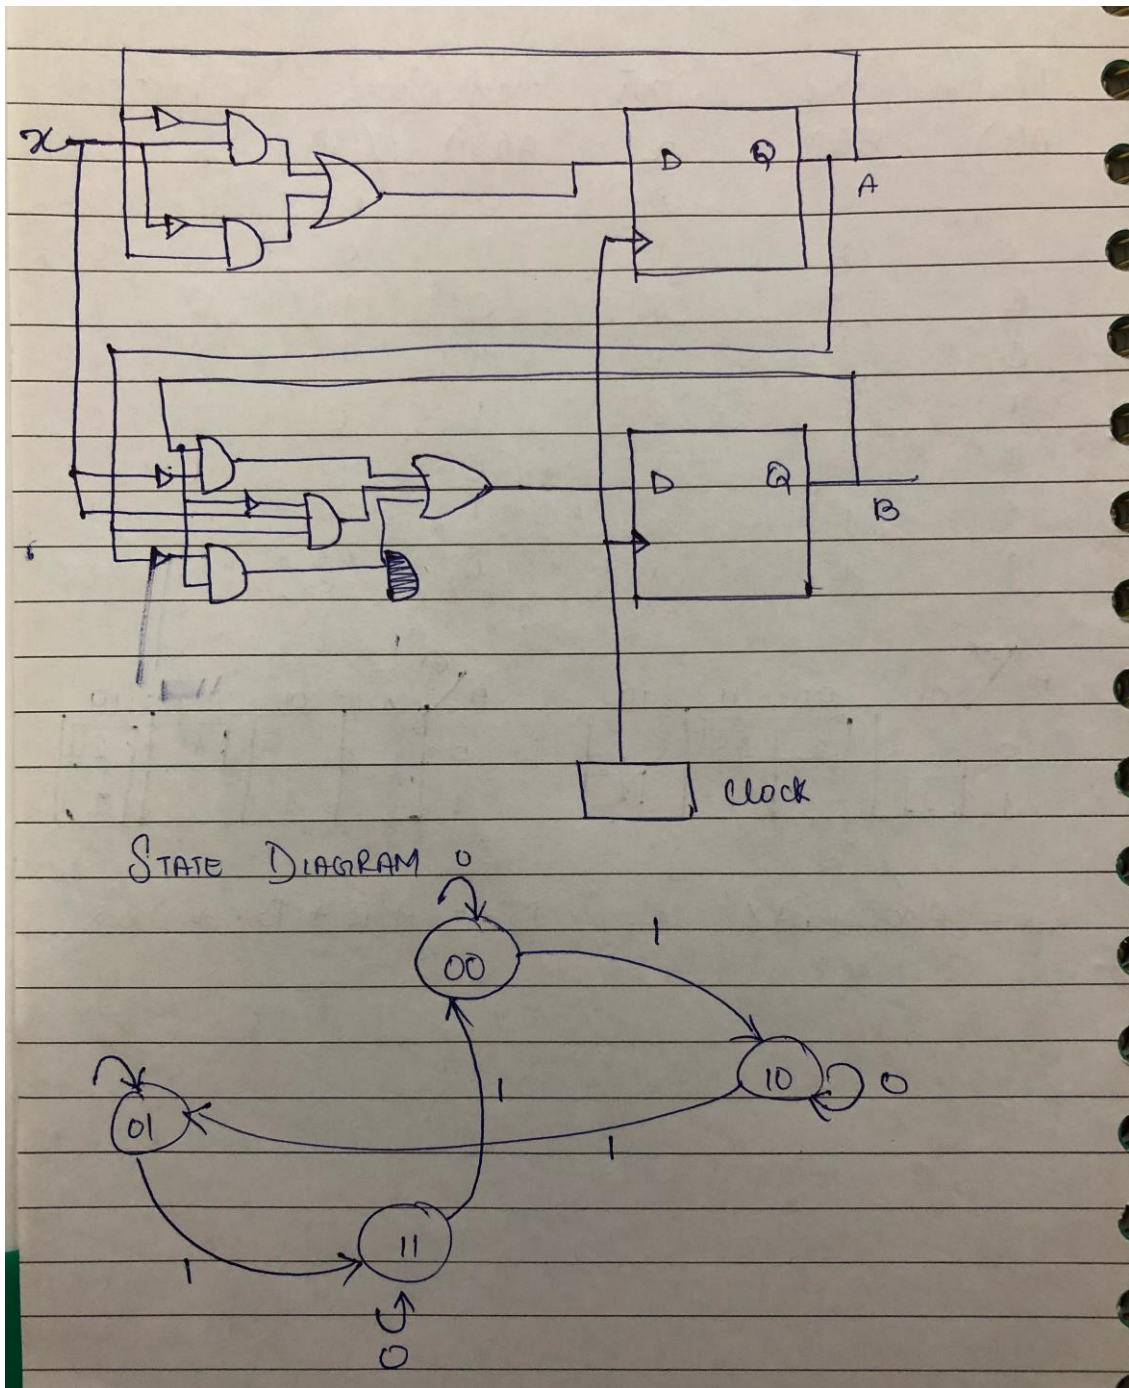 x
D Q
A
D Q
B
Clock
STATE DIAGRAM
0
1
00
10 0
1
01
1
11
1
0